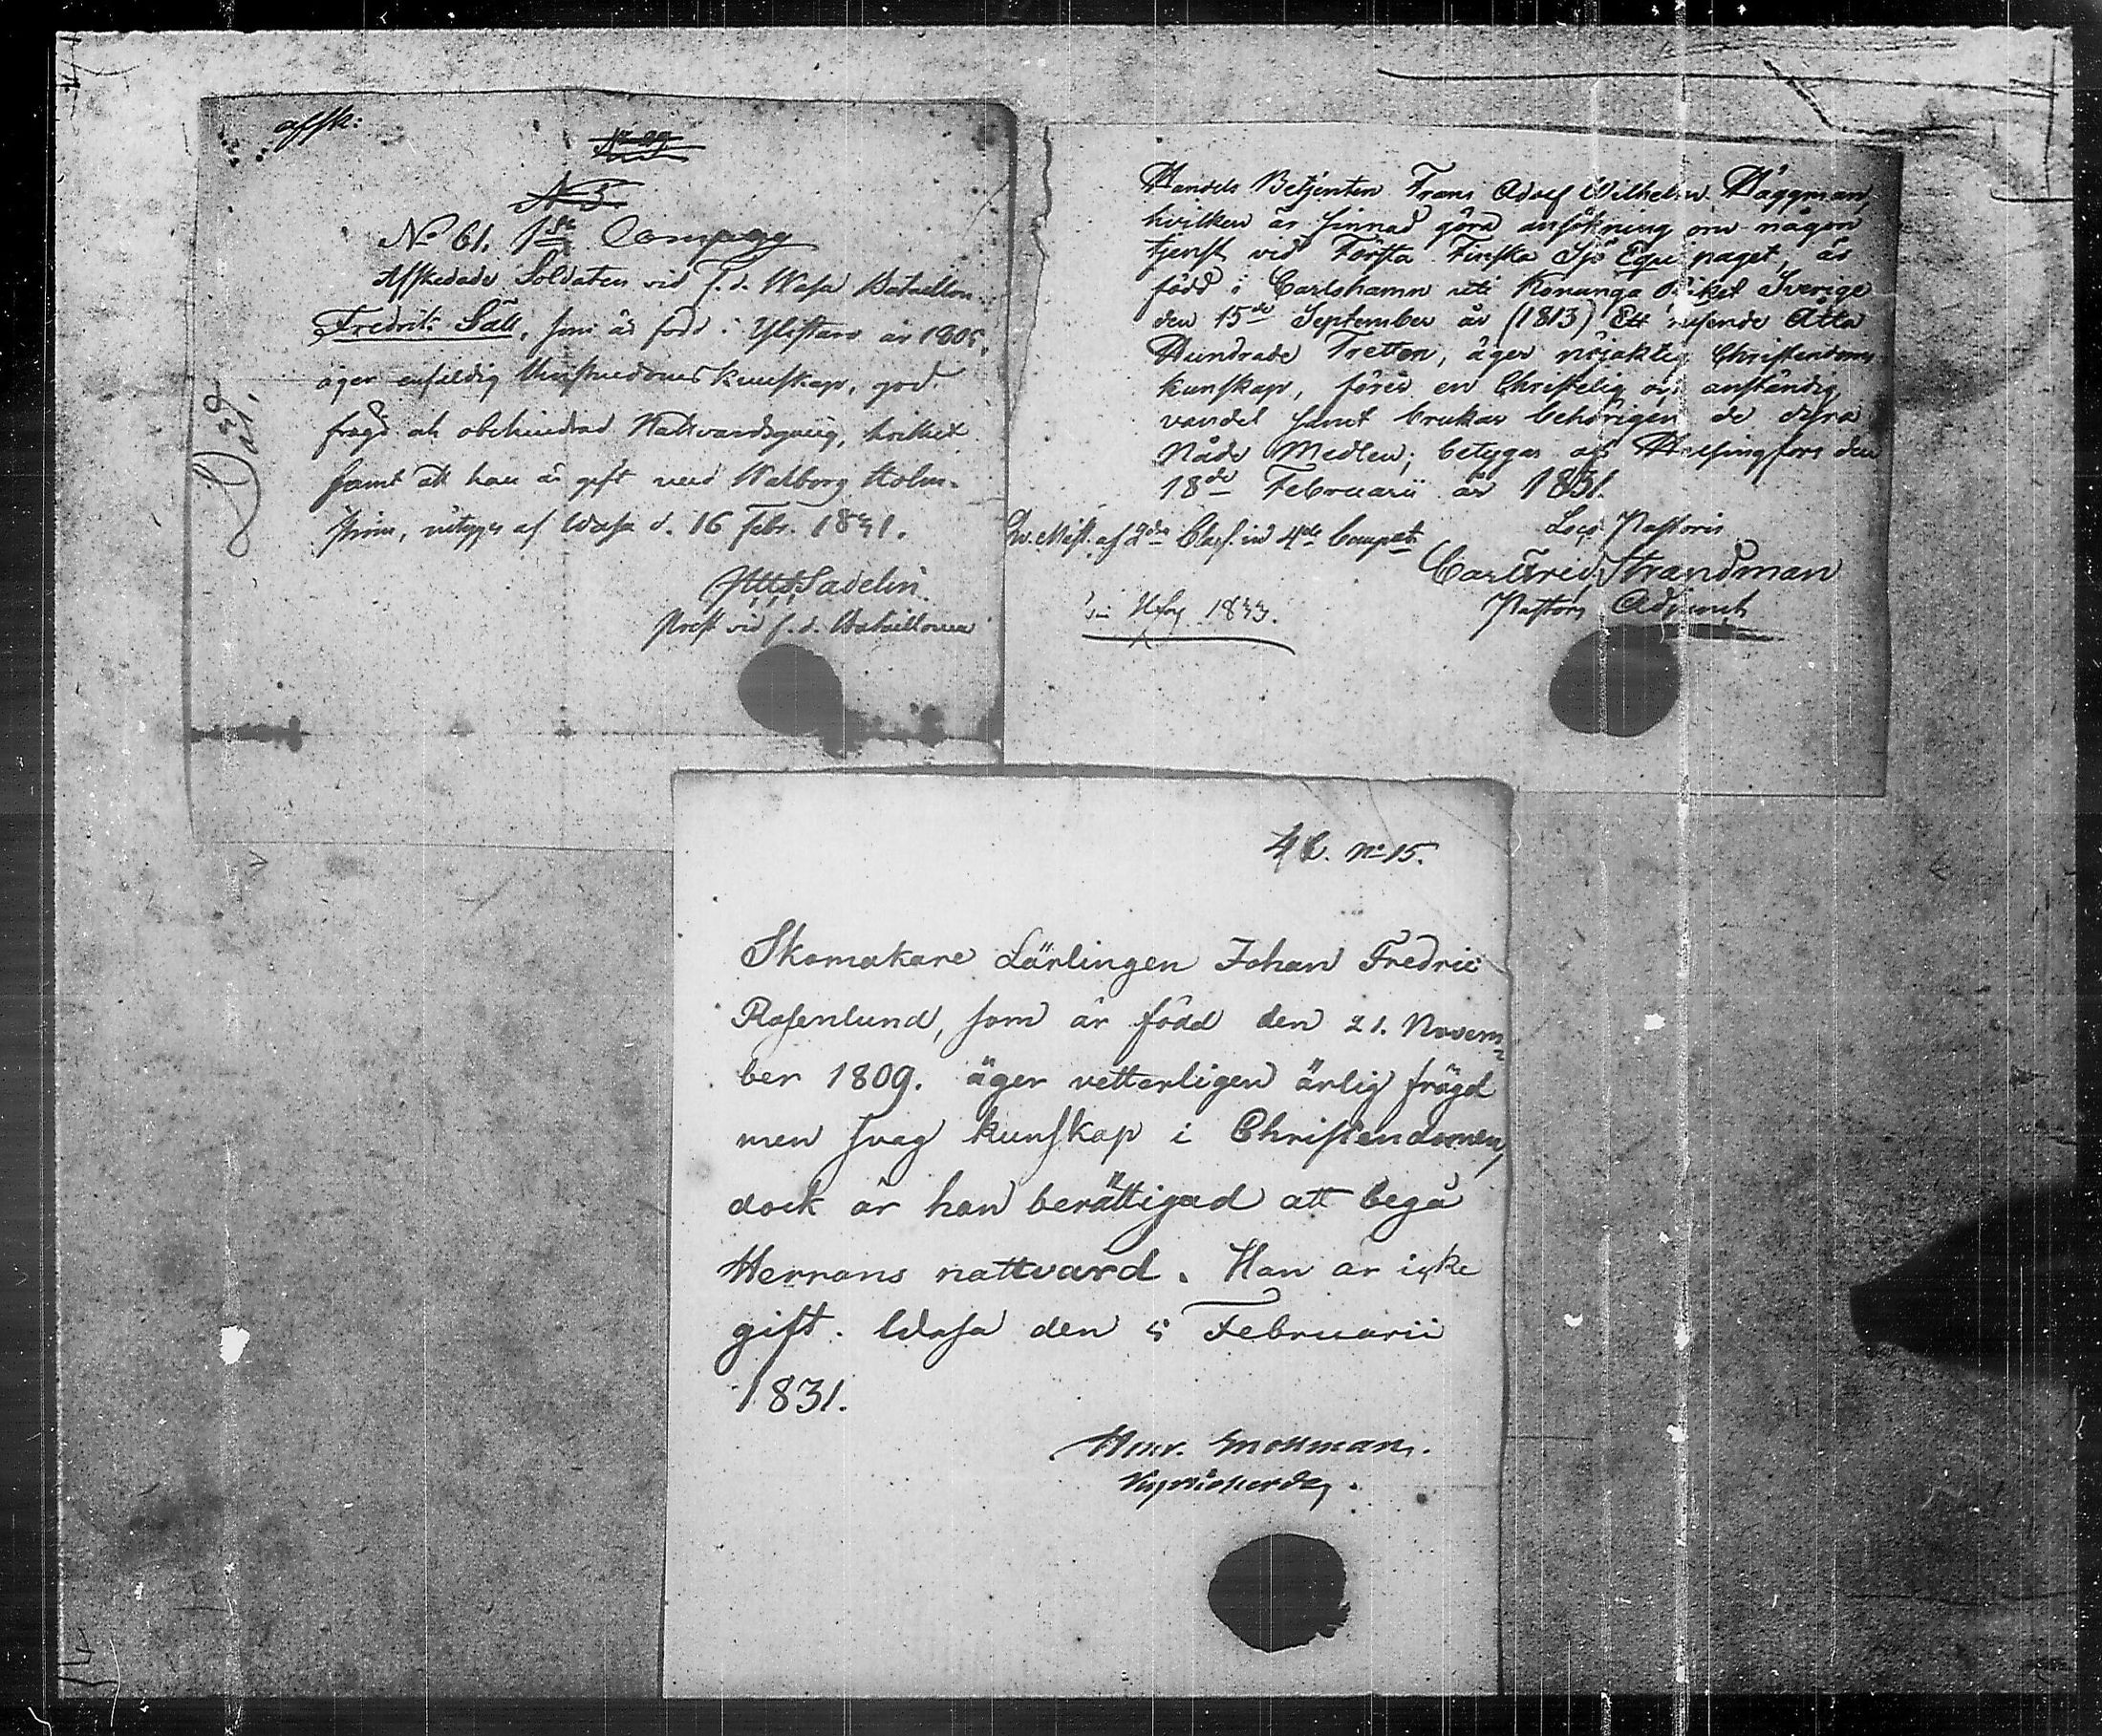 afsk:
No 29
No 5
No 61. 1sta Compagn
Afskedade Soldaten vid f. d. Wasa Bataillon
Fredrik Säll, som är född i Ylistaro år 1805,
äger enfaldig Christendoms kunskap, god
frägd och obehindrad Nattvardsgång, hvilket
samt att han är gift med Walborg Holm-
ström, intygas af Wasa d. 16 Febr. 1831.
Sadelin.
Prest vid f. d. Bataillonen
Död.
Handels Betjenten Frans Adolf Wilhelm Häggman,
hvilken är sinnad göra ansökning om någon
tjenst vid Första Finska Sjö Equipaget, är
född i Carlshamn uti Konunga Riket Sverige
den 15de September år (1813) Ett tusende Åtta
Hundrade Tretton, äger nöjaktig Christendoms
kunskap, förer en Christelig och anständig
vandel samt brukar behörigen de dyra
Nåde Medlen; betygas af Helsingfors den
18de Februarii år 1831.
Loco Pastoris
Carl Fried. Strandman
Pastors Adjunct
af 2dra Class. vid 4de Comp
1833.
4 C. No 15.
Skomakare Lärlingen Johan Fredric
Rosenlund, som är född den 21. Novem=
ber 1809. äger vetterligen ärlig frägd
men svag kunskap i Christendomen,
dock är han berättigad att begå
Herrans nattvard. Han är icke
gift. Wasa den 5 Februarii
1831.
Henr.